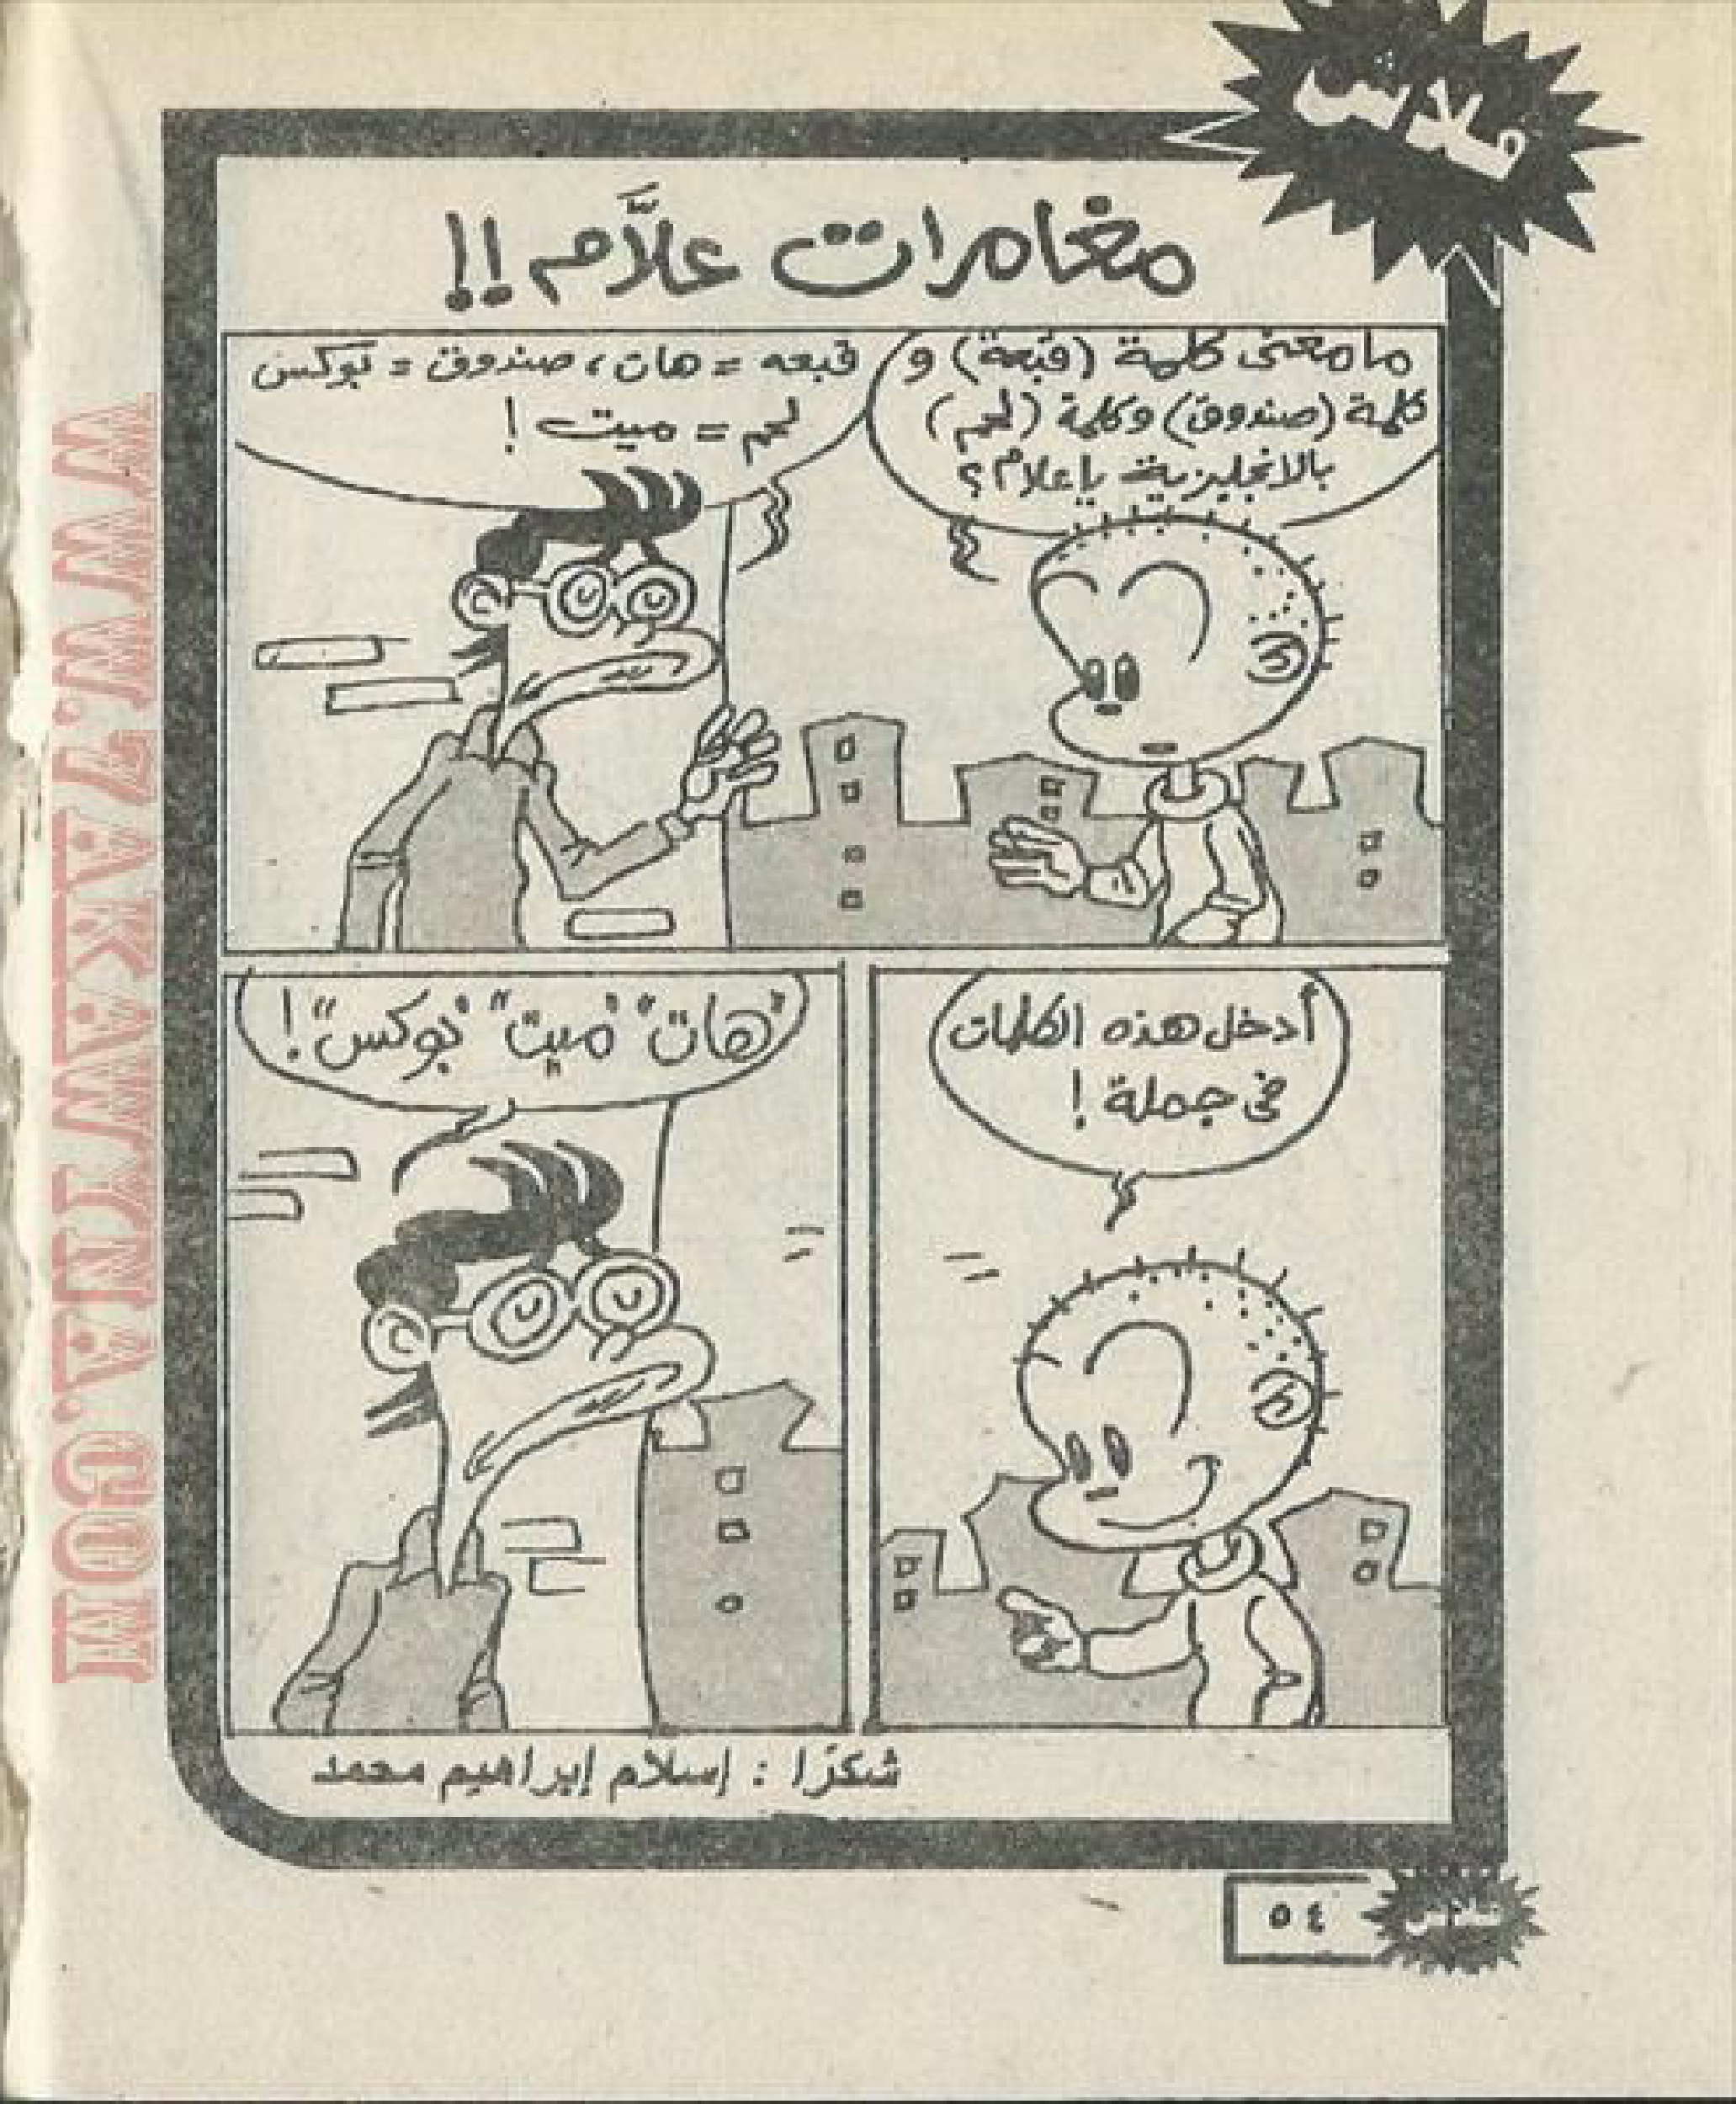 فلاش
مغامرات علاَّم !!
ما معنى كلمة (قبعة) و
كلمة (صندوق) وكلمة (لحم)
بالانجليزية ياعلام؟
قبعه = هات، صندوق = بوكس
لحم = ميت !
أدخل هذه الكلمات
فى جملة !
"هات" "ميت" "بوكس" !
شكرًا : إسلام إبراهيم محمد
٥٤
فلاش
WWW.7AKAWYNA.COM